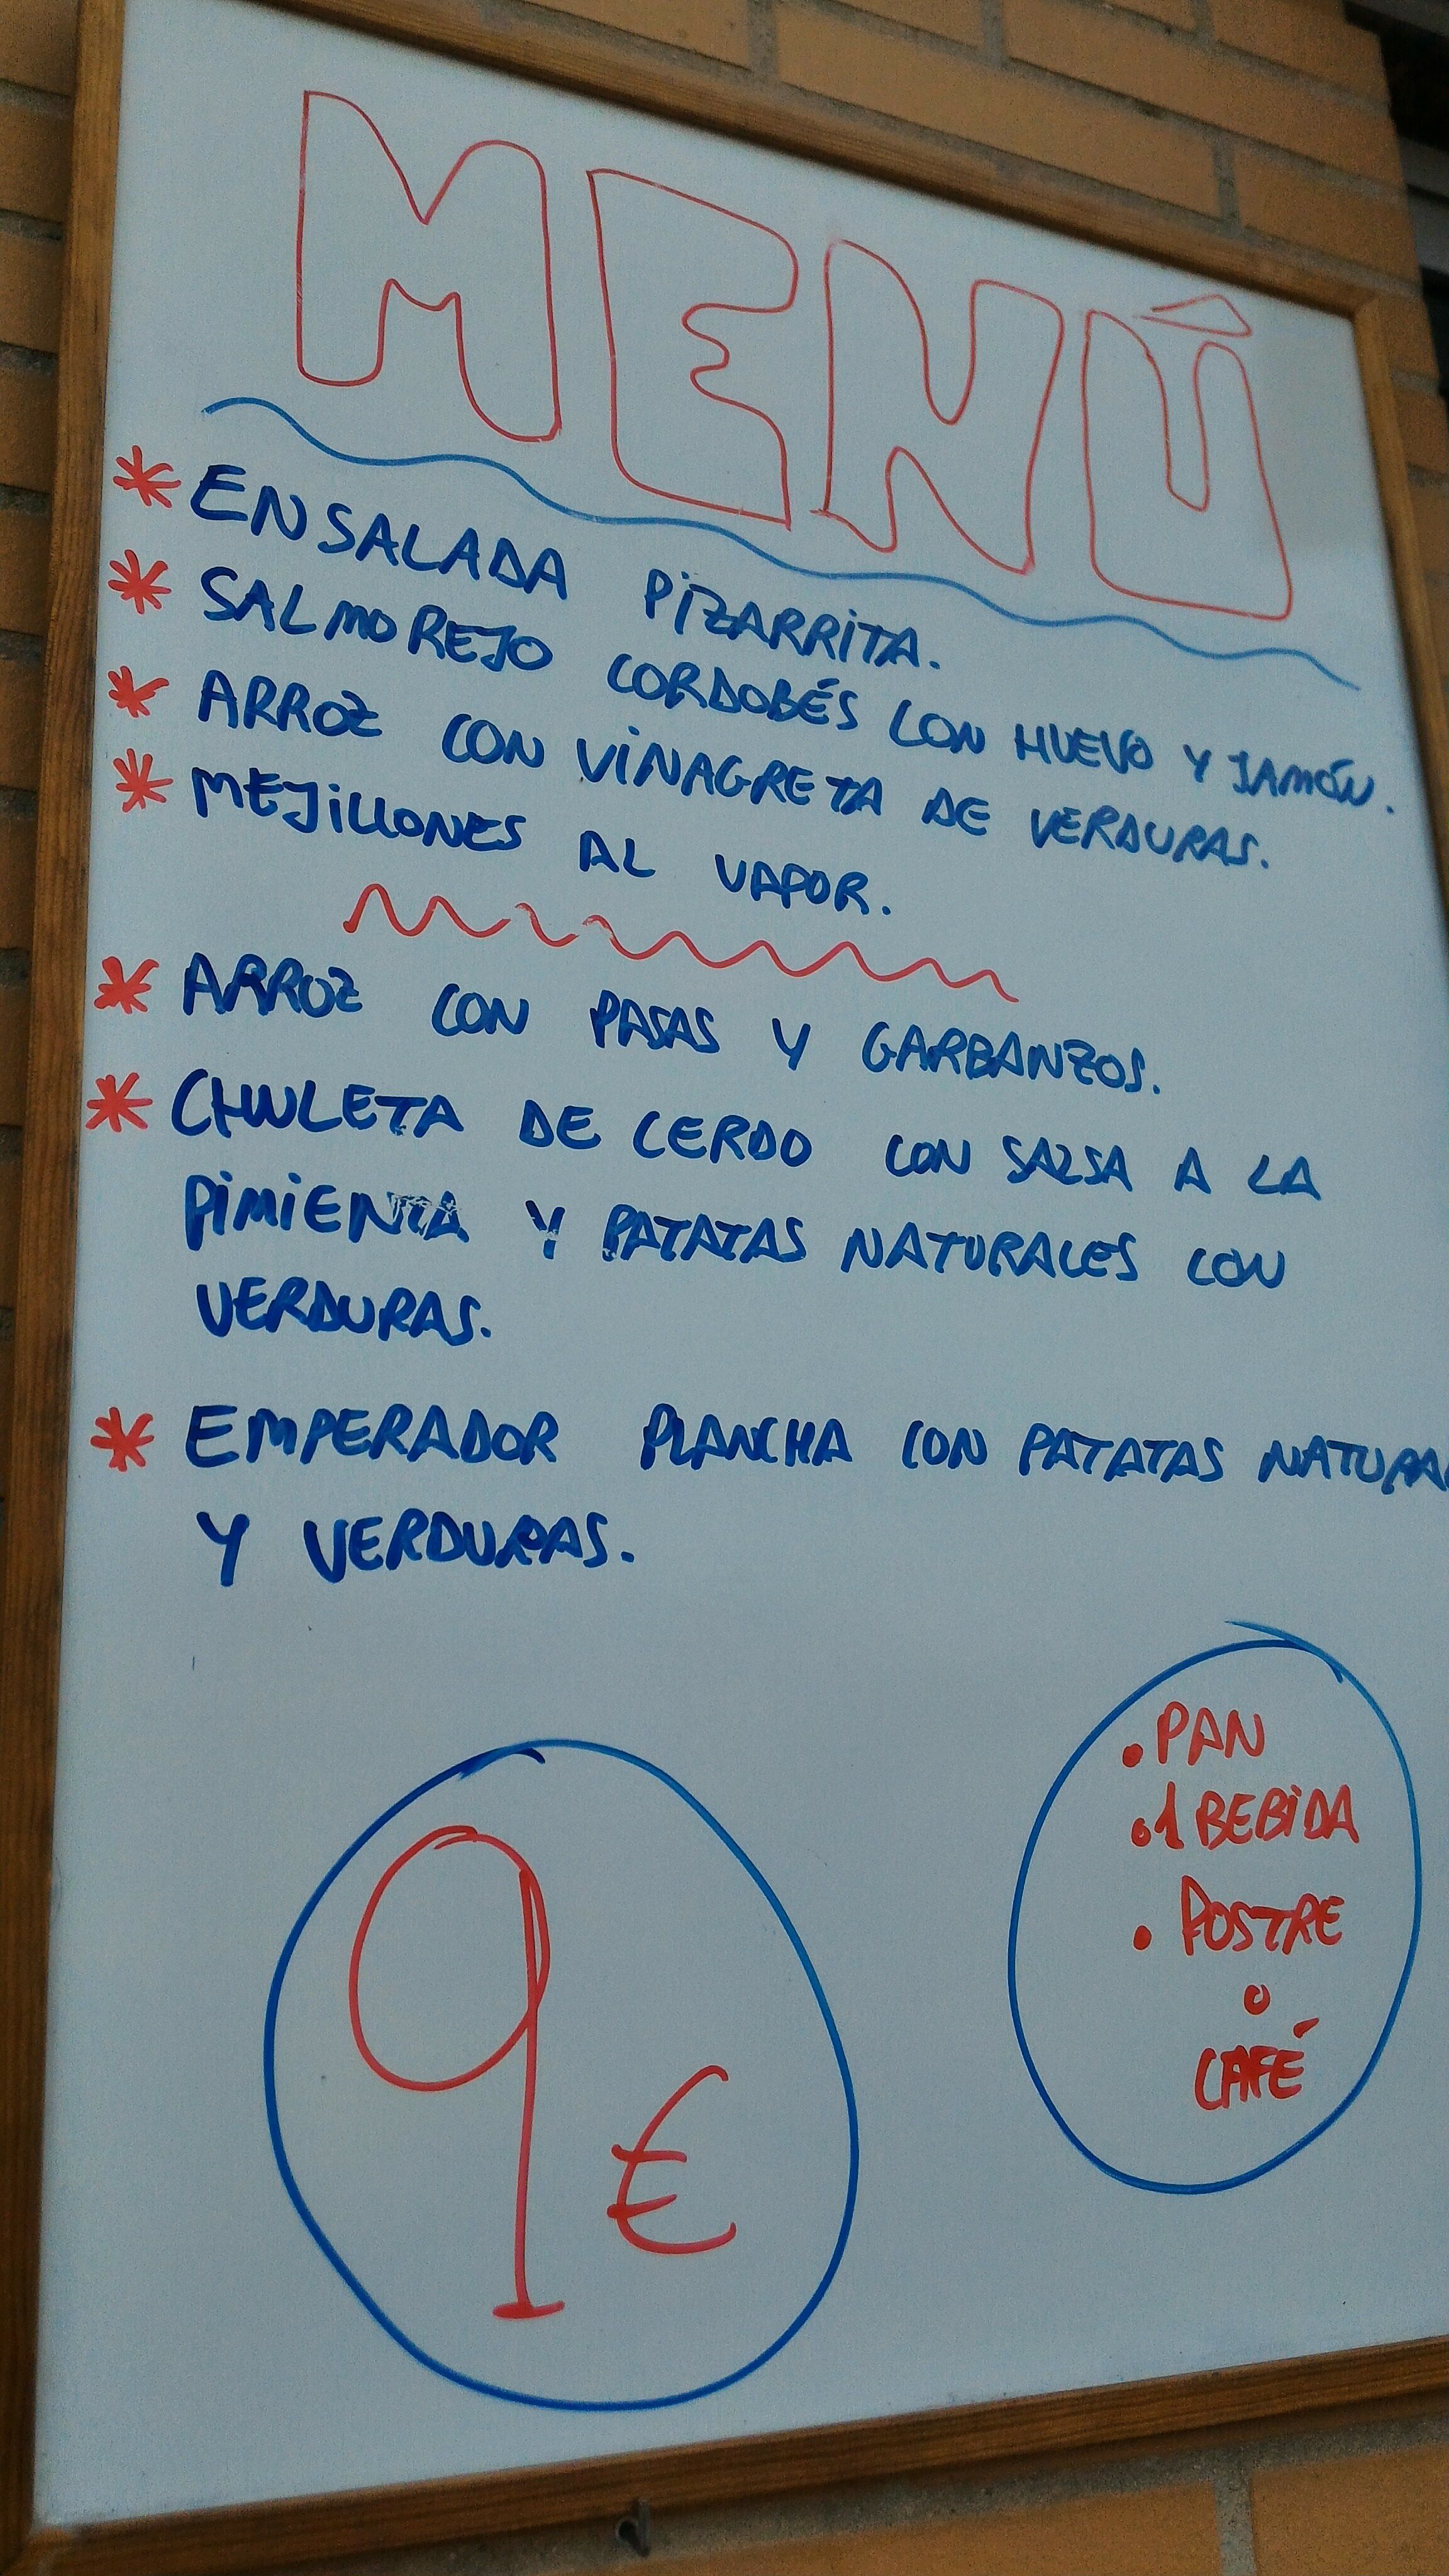 MENÚ
* ENSALADA PIZARRITA.
* SALMOREJO CORDOBÉS CON HUEVO Y JAMÓN.
* ARROZ CON VINAGRETA DE VERDURAS.
* MEJILLONES AL VAPOR.
* ARROZ CON PASAS Y GARBANZOS.
* CHULETA DE CERDO CON SALSA A LA
PIMIENTA Y PATATAS NATURALES CON
VERDURAS.
* EMPERADOR PLANCHA CON PATATAS NATURA
Y VERDURAS.
• PAN
• 1 BEBIDA
• POSTRE
o
CAFÉ
9 €